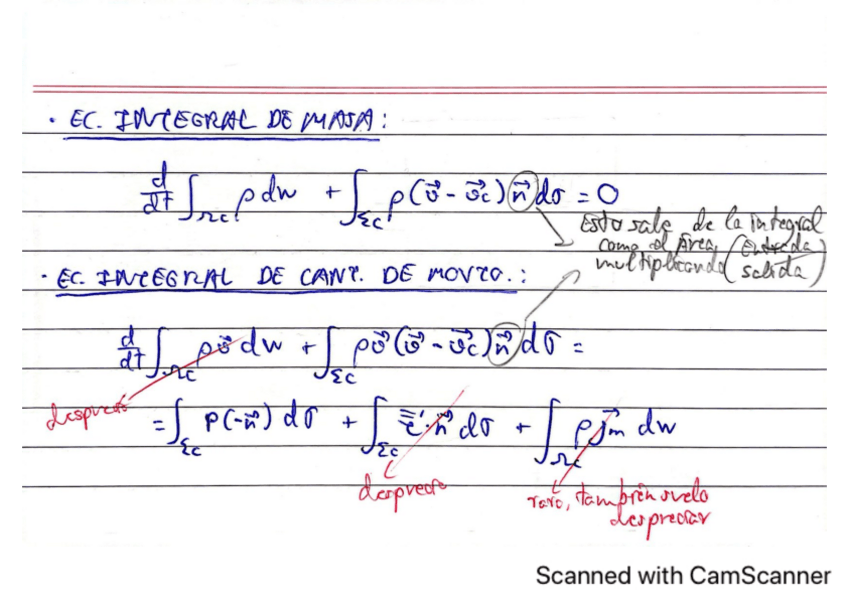 · EC. INTEGRAL DE MASA:
d/dt ∫Ωc ρ dω + ∫Σc ρ(v⃗ - v⃗c) n⃗ dσ = 0
Esto sale de la integral
como el Área (Entrada
multiplicando salida)
· EC. INTEGRAL DE CANT. DE MOVTO.:
d/dt ∫Ωc ρv⃗ dω + ∫Σc ρv⃗ (v⃗ - v⃗c) n⃗ dσ =
desprecio
= ∫Σc P(-n⃗) dσ + ∫Σc τ̿'·n⃗ dσ + ∫Ωc ρ f⃗m dω
desprecio
raro, también suelo
despreciar
Scanned with CamScanner